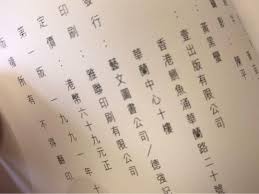 影：陳平
：黃業
：壹出版有限公司
香港鰂魚涌華蘭路二十號
華蘭中心十樓
發行：藝文圖書公司／德強記
印刷：雅聯印刷有限公司
定價：港幣六十九元正
第一版：一九九一年十
版 所有 不得翻印